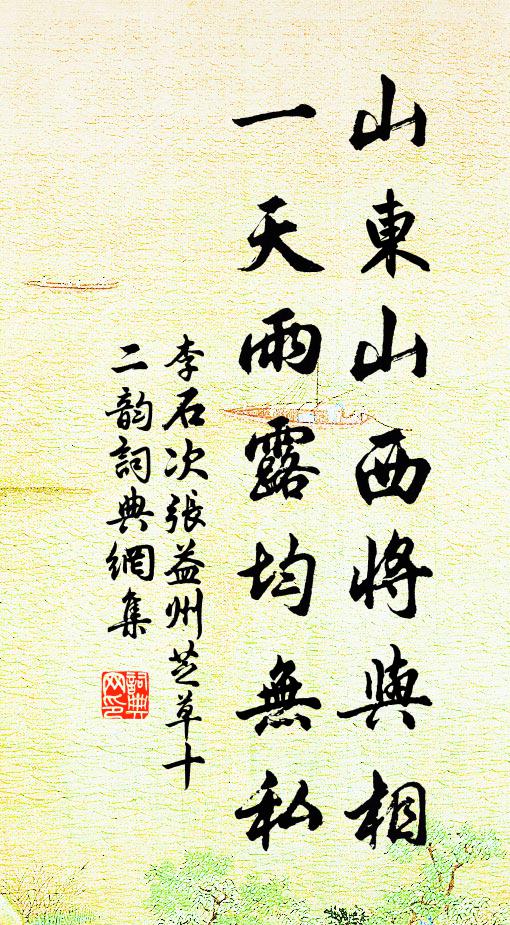 山東山西將與相
一天雨露均無私
李石次張益州芝草十
二韵詞典網集
詞典網印